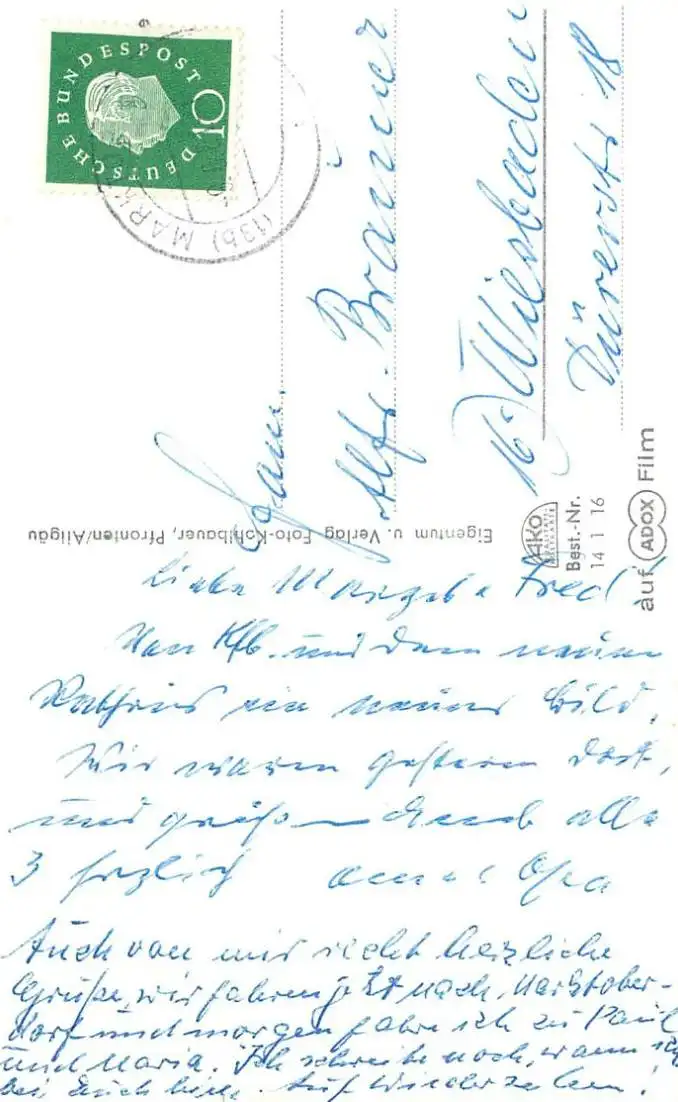 DEUTSCHE BUNDESPOST
10
(13b) MARK
Fam.
Alfr. Brauner
16) Wiesbaden
Dürerstr. 18
Eigentum u. Verlag Foto-Kohlbauer, Pfronten/Allgäu
AKO
Best.-Nr.
14 1 16
auf ADOX Film
Liebe Marga & Fred
Von Kfb. und dem neuen
Rathaus ein neues Bild.
Wir waren gestern dort,
und grüßen Euch alle
3 herzlich Opa
Auch von mir recht herzliche
Grüße, wir fahren jetzt nach Marktober-
dorf und morgen fahre ich zu Paul
und Maria. Ich schreibe noch, wann ich
bei Euch bin. Auf Wiedersehen!